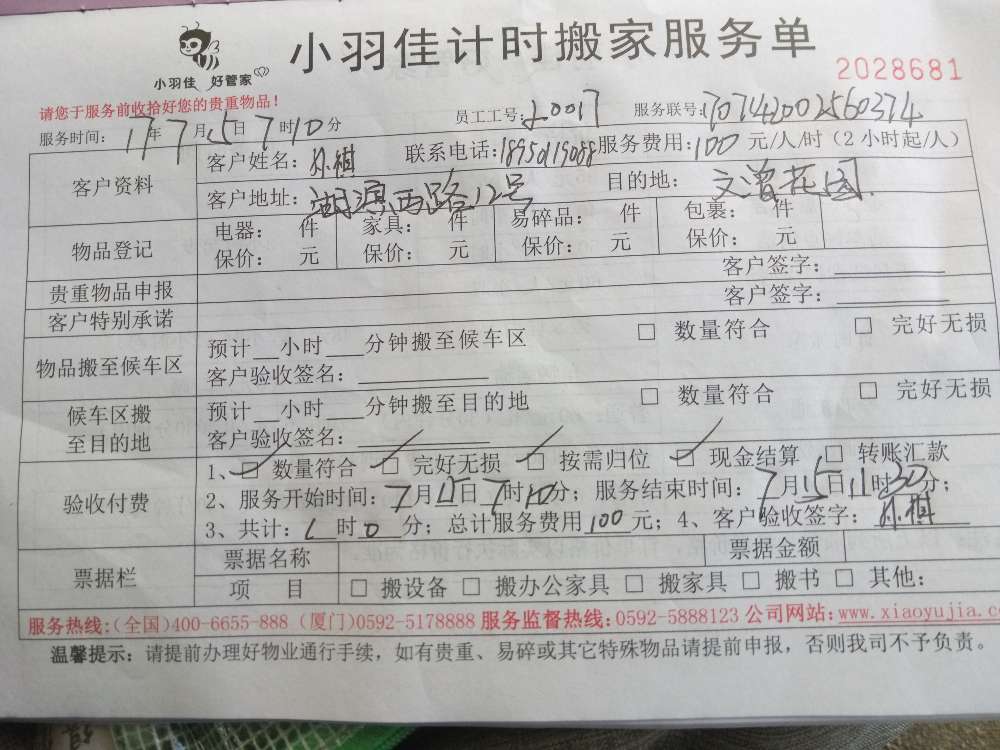 小羽佳 好管家
小羽佳计时搬家服务单
2028681
请您于服务前收拾好您的贵重物品！
服务时间：17年7月15日7时10分 员工工号： 服务联号：
客户资料
客户姓名：孙祺 联系电话： 服务费用：100元/人/时（2小时起/人）
客户地址：湖滨西路12号 目的地：文曾花园
物品登记
电器： 件 家具： 件 易碎品： 件 包裹： 件
保价： 元 保价： 元 保价： 元 保价： 元
贵重物品申报 客户签字：
客户特别承诺 客户签字：
物品搬至候车区
预计__小时___分钟搬至候车区 □ 数量符合 □ 完好无损
客户验收签名：
候车区搬至目的地
预计__小时___分钟搬至目的地 □ 数量符合 □ 完好无损
客户验收签名：
验收付费
1、☑ 数量符合 ☑ 完好无损 ☑ 按需归位 ☑ 现金结算 □ 转账汇款
2、服务开始时间：7月15日7时10分；服务结束时间：7月15日11时30分；
3、共计： 时0分；总计服务费用100元；4、客户验收签字：孙祺
票据栏
票据名称 票据金额
项 目 □ 搬设备 □ 搬办公家具 □ 搬家具 □ 搬书 □ 其他：
服务热线：(全国)400-6655-888 (厦门)0592-5178888 服务监督热线：0592-5888123 公司网站：www.xiaoyujia.c
温馨提示：请提前办理好物业通行手续，如有贵重、易碎或其它特殊物品请提前申报，否则我司不予负责。